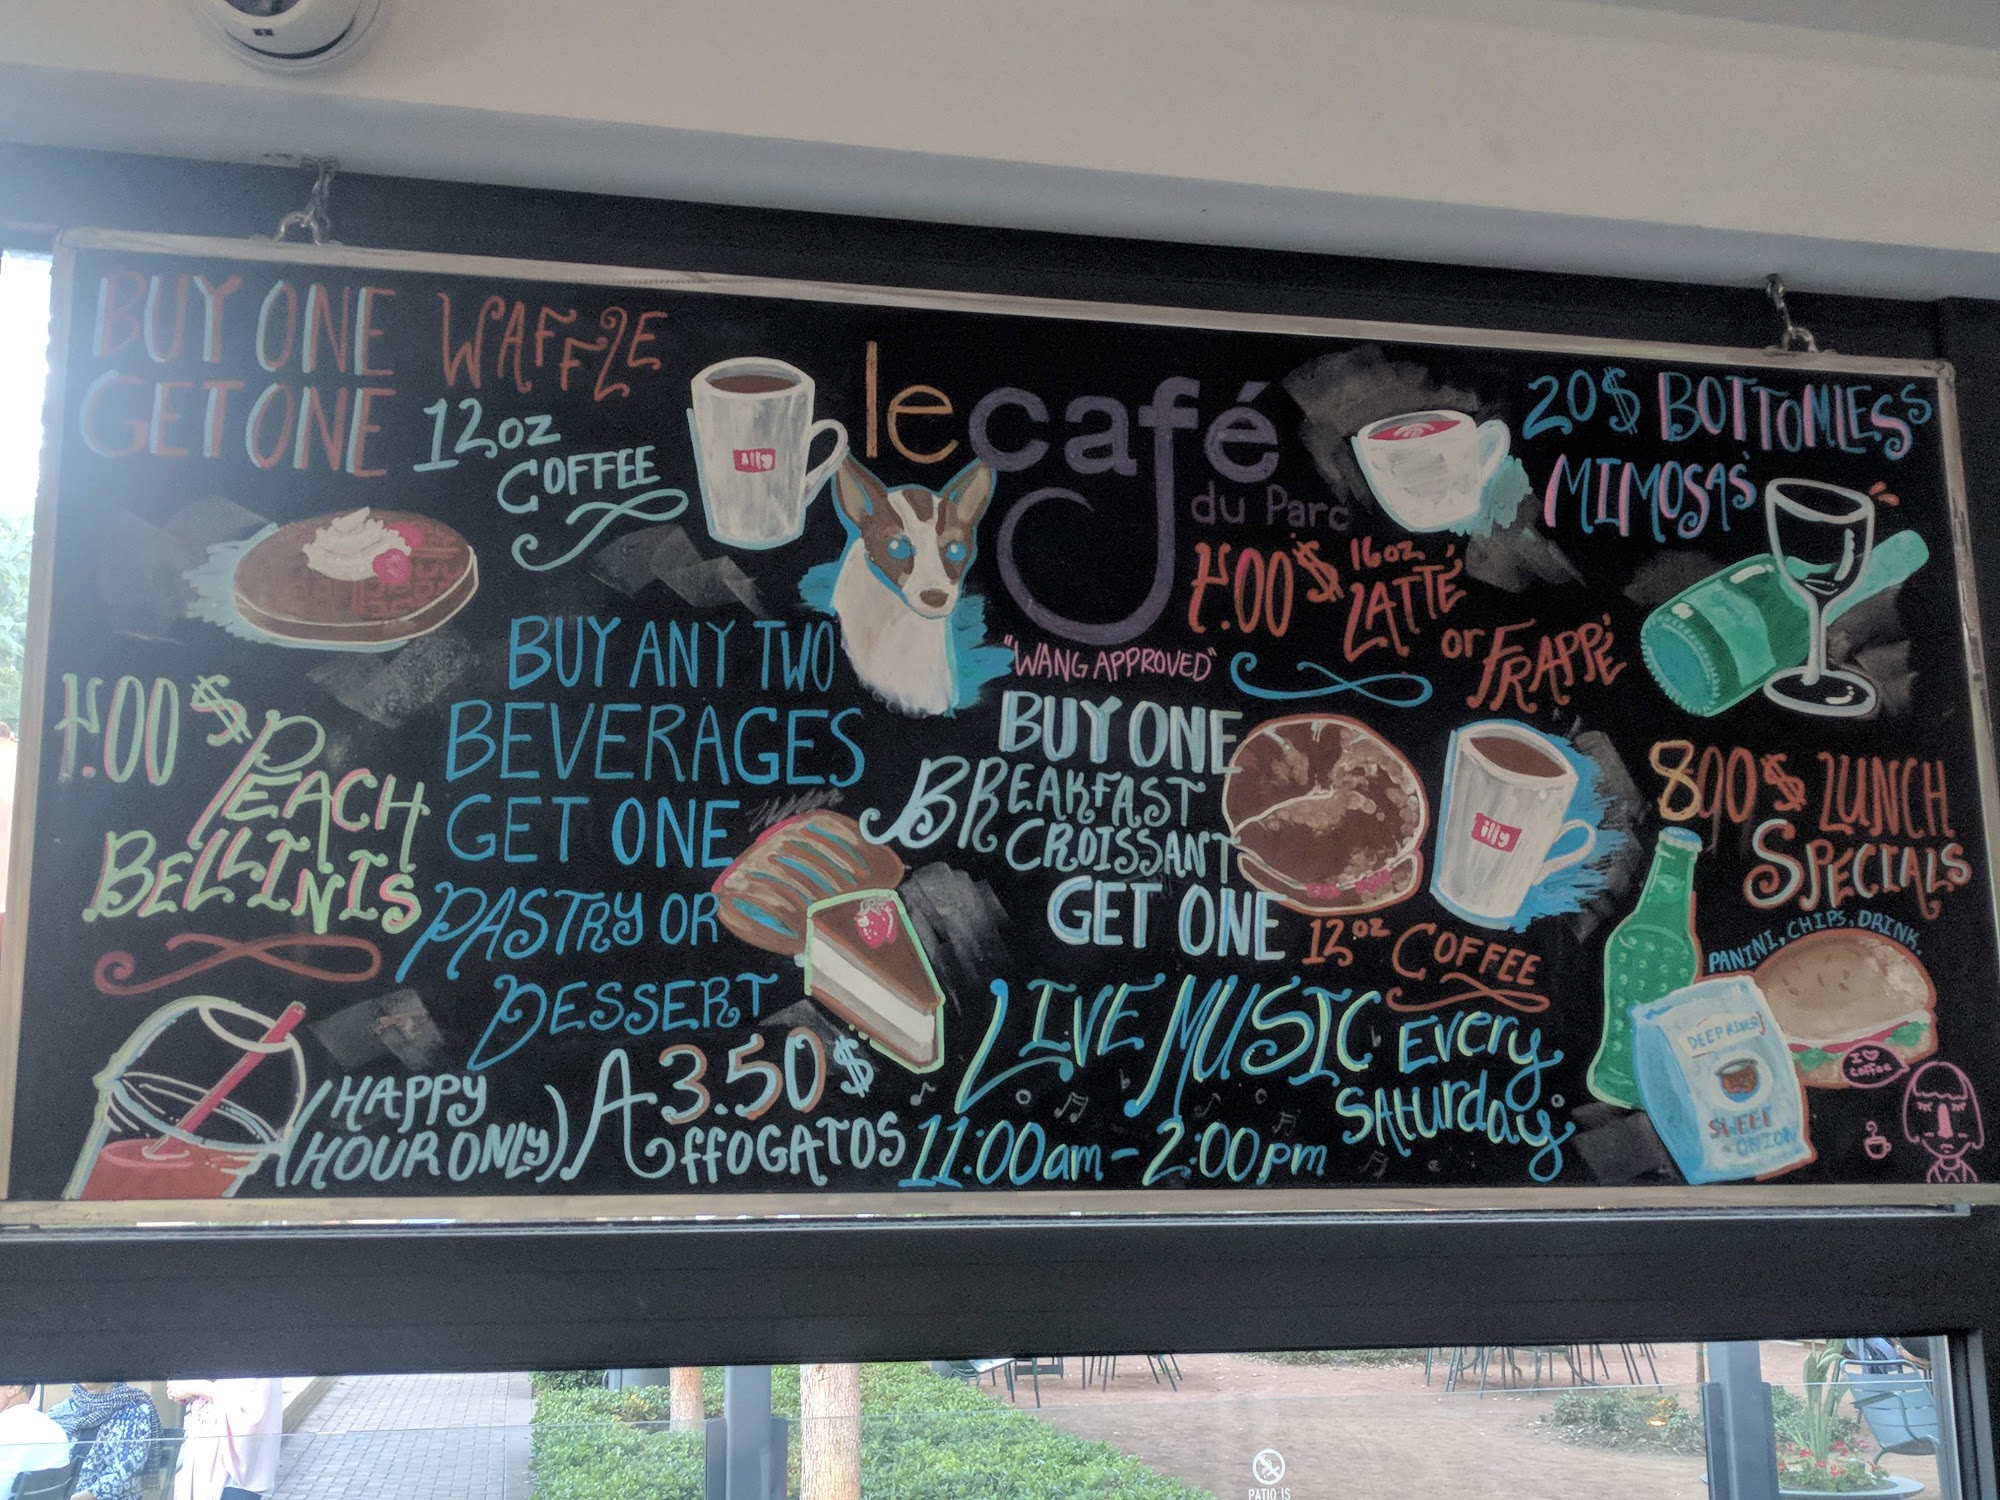 BUY ONE WAFFLE
GET ONE 12oz
COFFEE
illy
le café
du Parc
"WANG APPROVED"
20$ BOTTOMLESS
MIMOSAS
4.00$ 16oz
LATTÉ
or FRAPPÉ
4.00$ PEACH
BELLINIS
(HAPPY
HOUR ONLY)
BUY ANY TWO
BEVERAGES
GET ONE
PASTRY OR
DESSERT
3.50$
AFFOGATOS
BUY ONE
BREAKFAST
CROISSANT
GET ONE
12oz COFFEE
illy
LIVE MUSIC Every
SAturday
11:00am - 2:00pm
800$ LUNCH
SPECIALS
PANINI, CHIPS, DRINK.
DEEP RIVER
SWEET
ONION
I ♥
coffee
PATIO IS